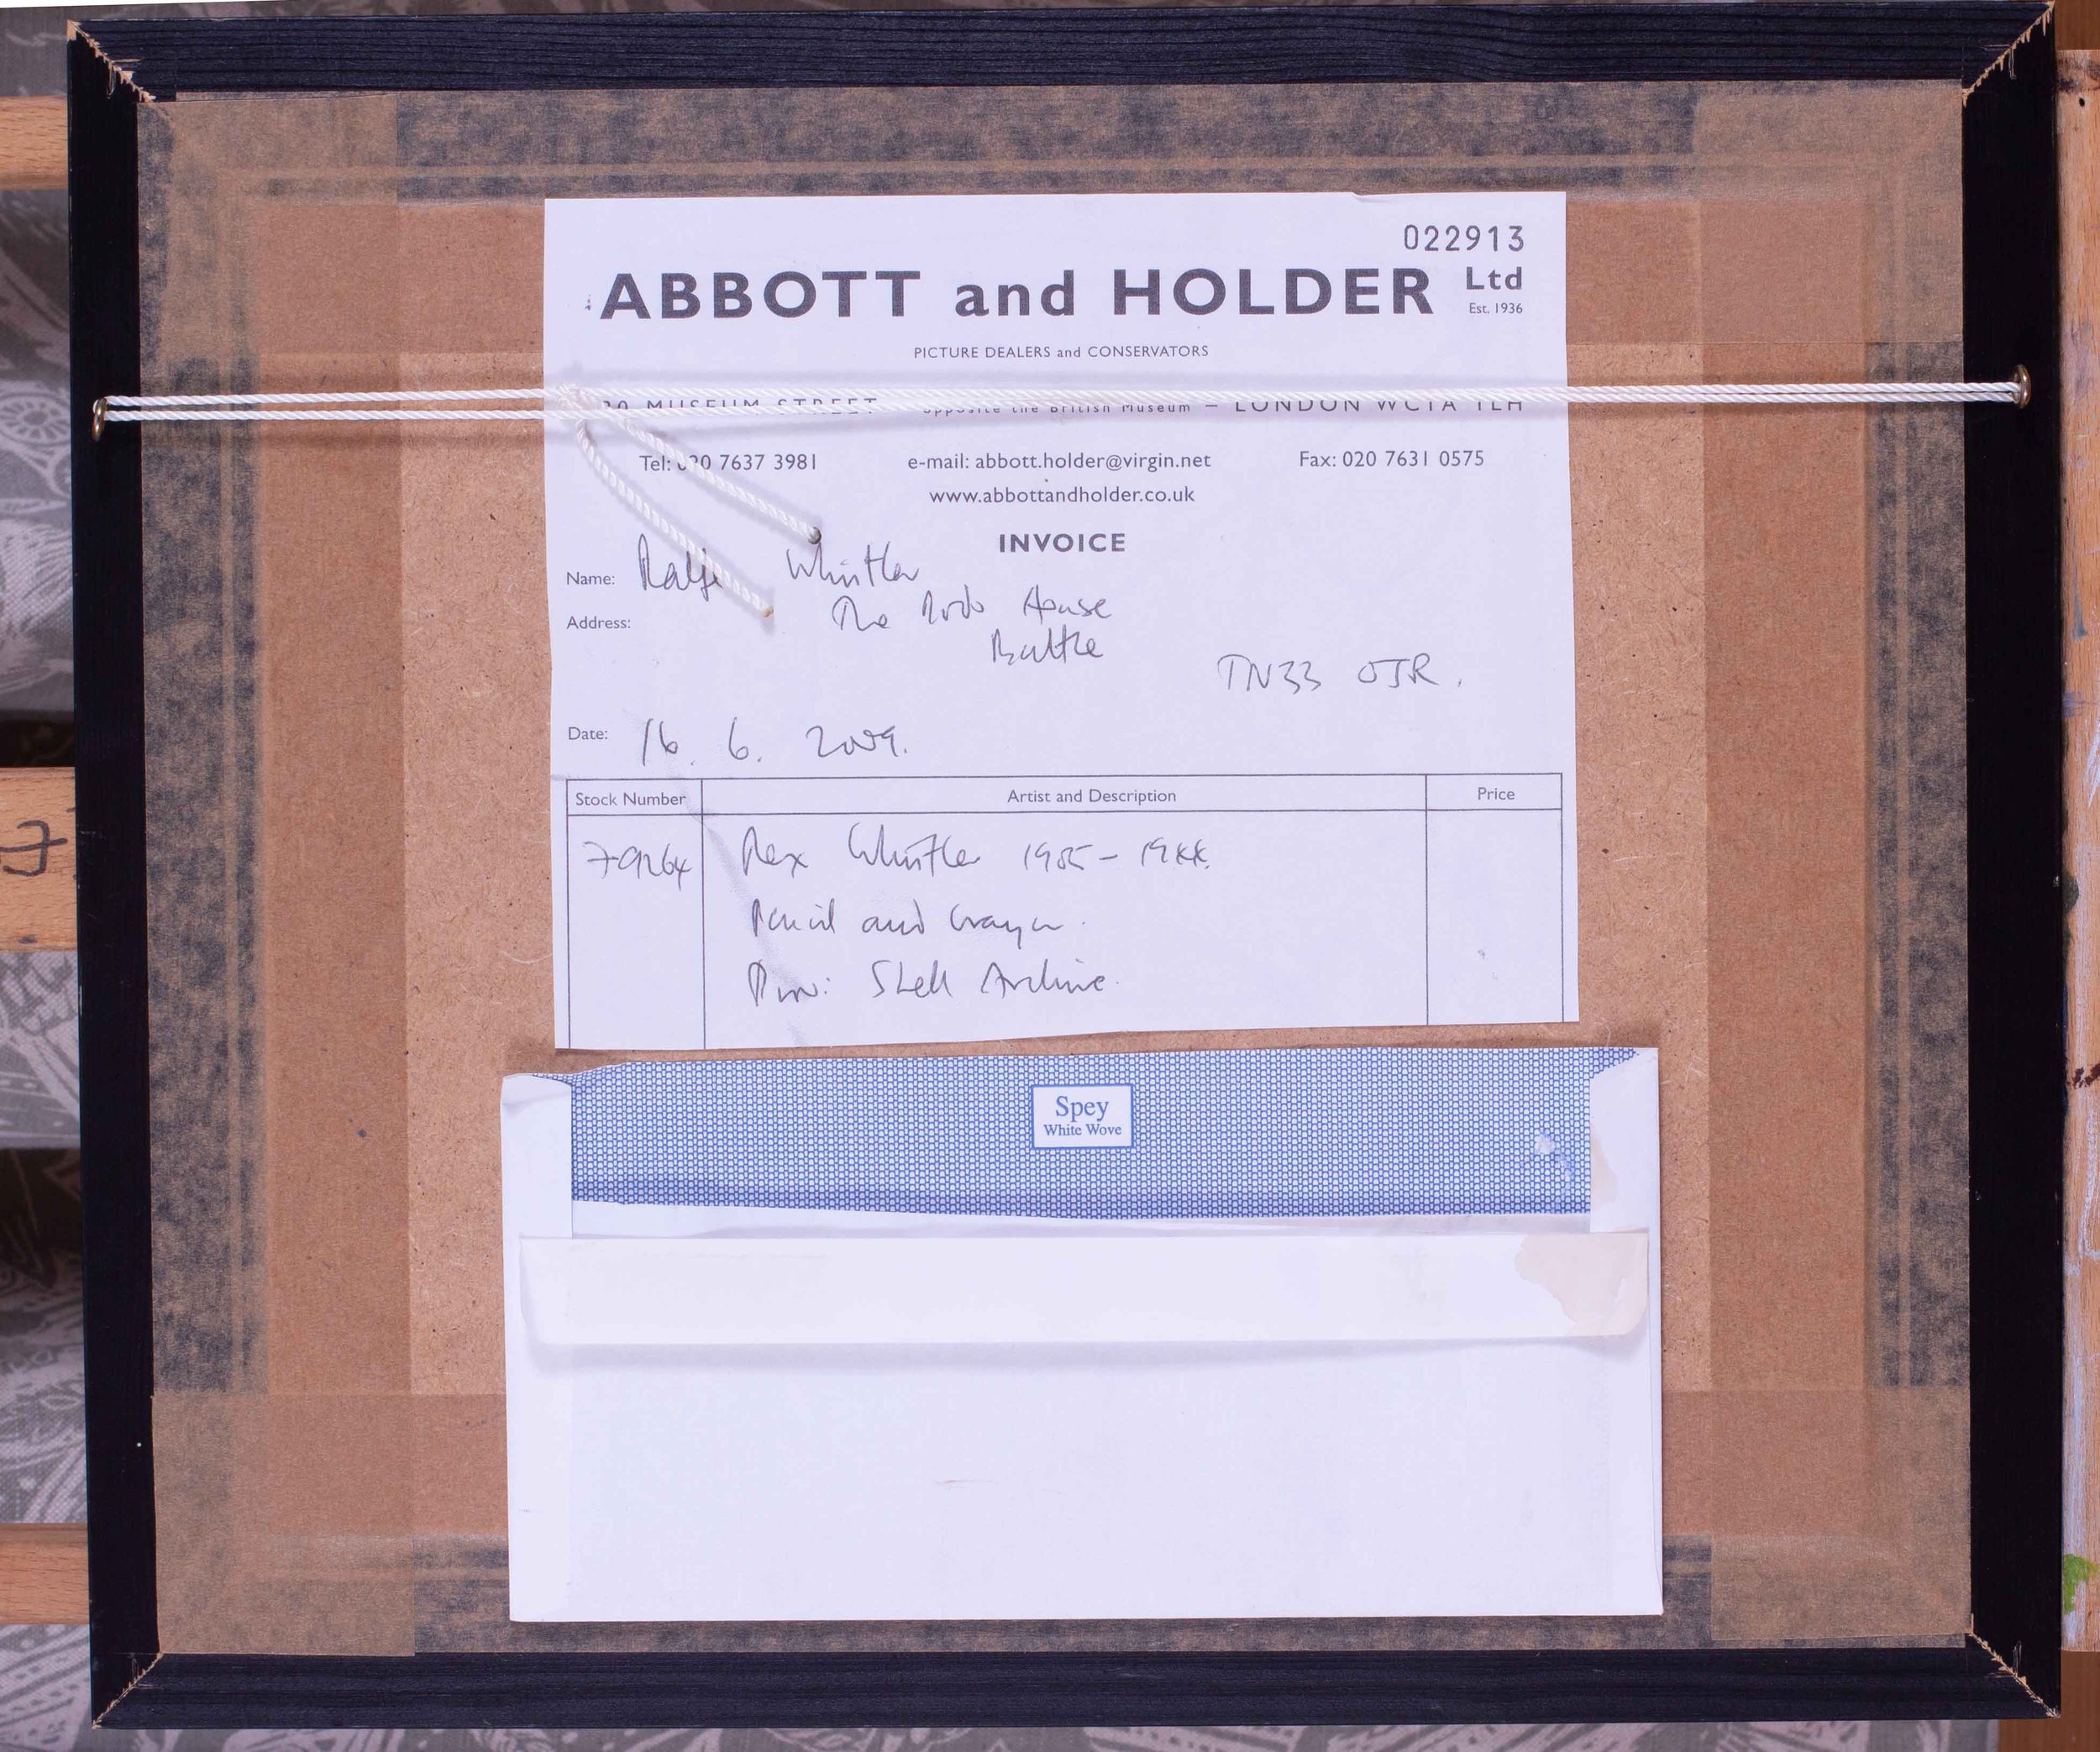 022913
ABBOTT and HOLDER Ltd
Est. 1936
PICTURE DEALERS and CONSERVATORS
30 MUSEUM STREET opposite the British Museum – LONDON WC1A 1LH
Tel: 020 7637 3981 e-mail: abbott.holder@virgin.net Fax: 020 7631 0575
www.abbottandholder.co.uk
INVOICE
Name: Ralfe Whistler
Address: The House
Battle
TN33 0JR.
Date: 16. 6. 2009.
Stock Number Artist and Description Price
79264 Rex Whistler 1905 – 1944.
Pencil and Crayon.
Prov: Shell Archive.
Spey
White Wove